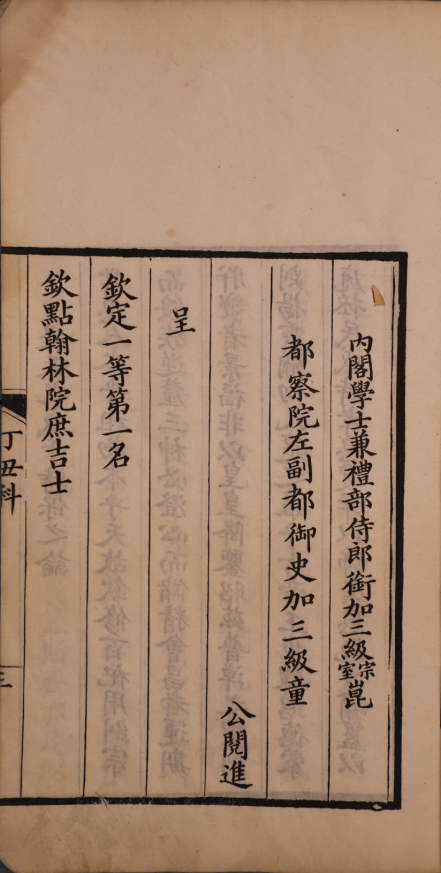 內閣學士兼禮部侍郎銜加三級宗室崑
都察院左副都御史加三級童
公閱進
呈
欽定一等第一名
欽點翰林院庶吉士
丁丑科